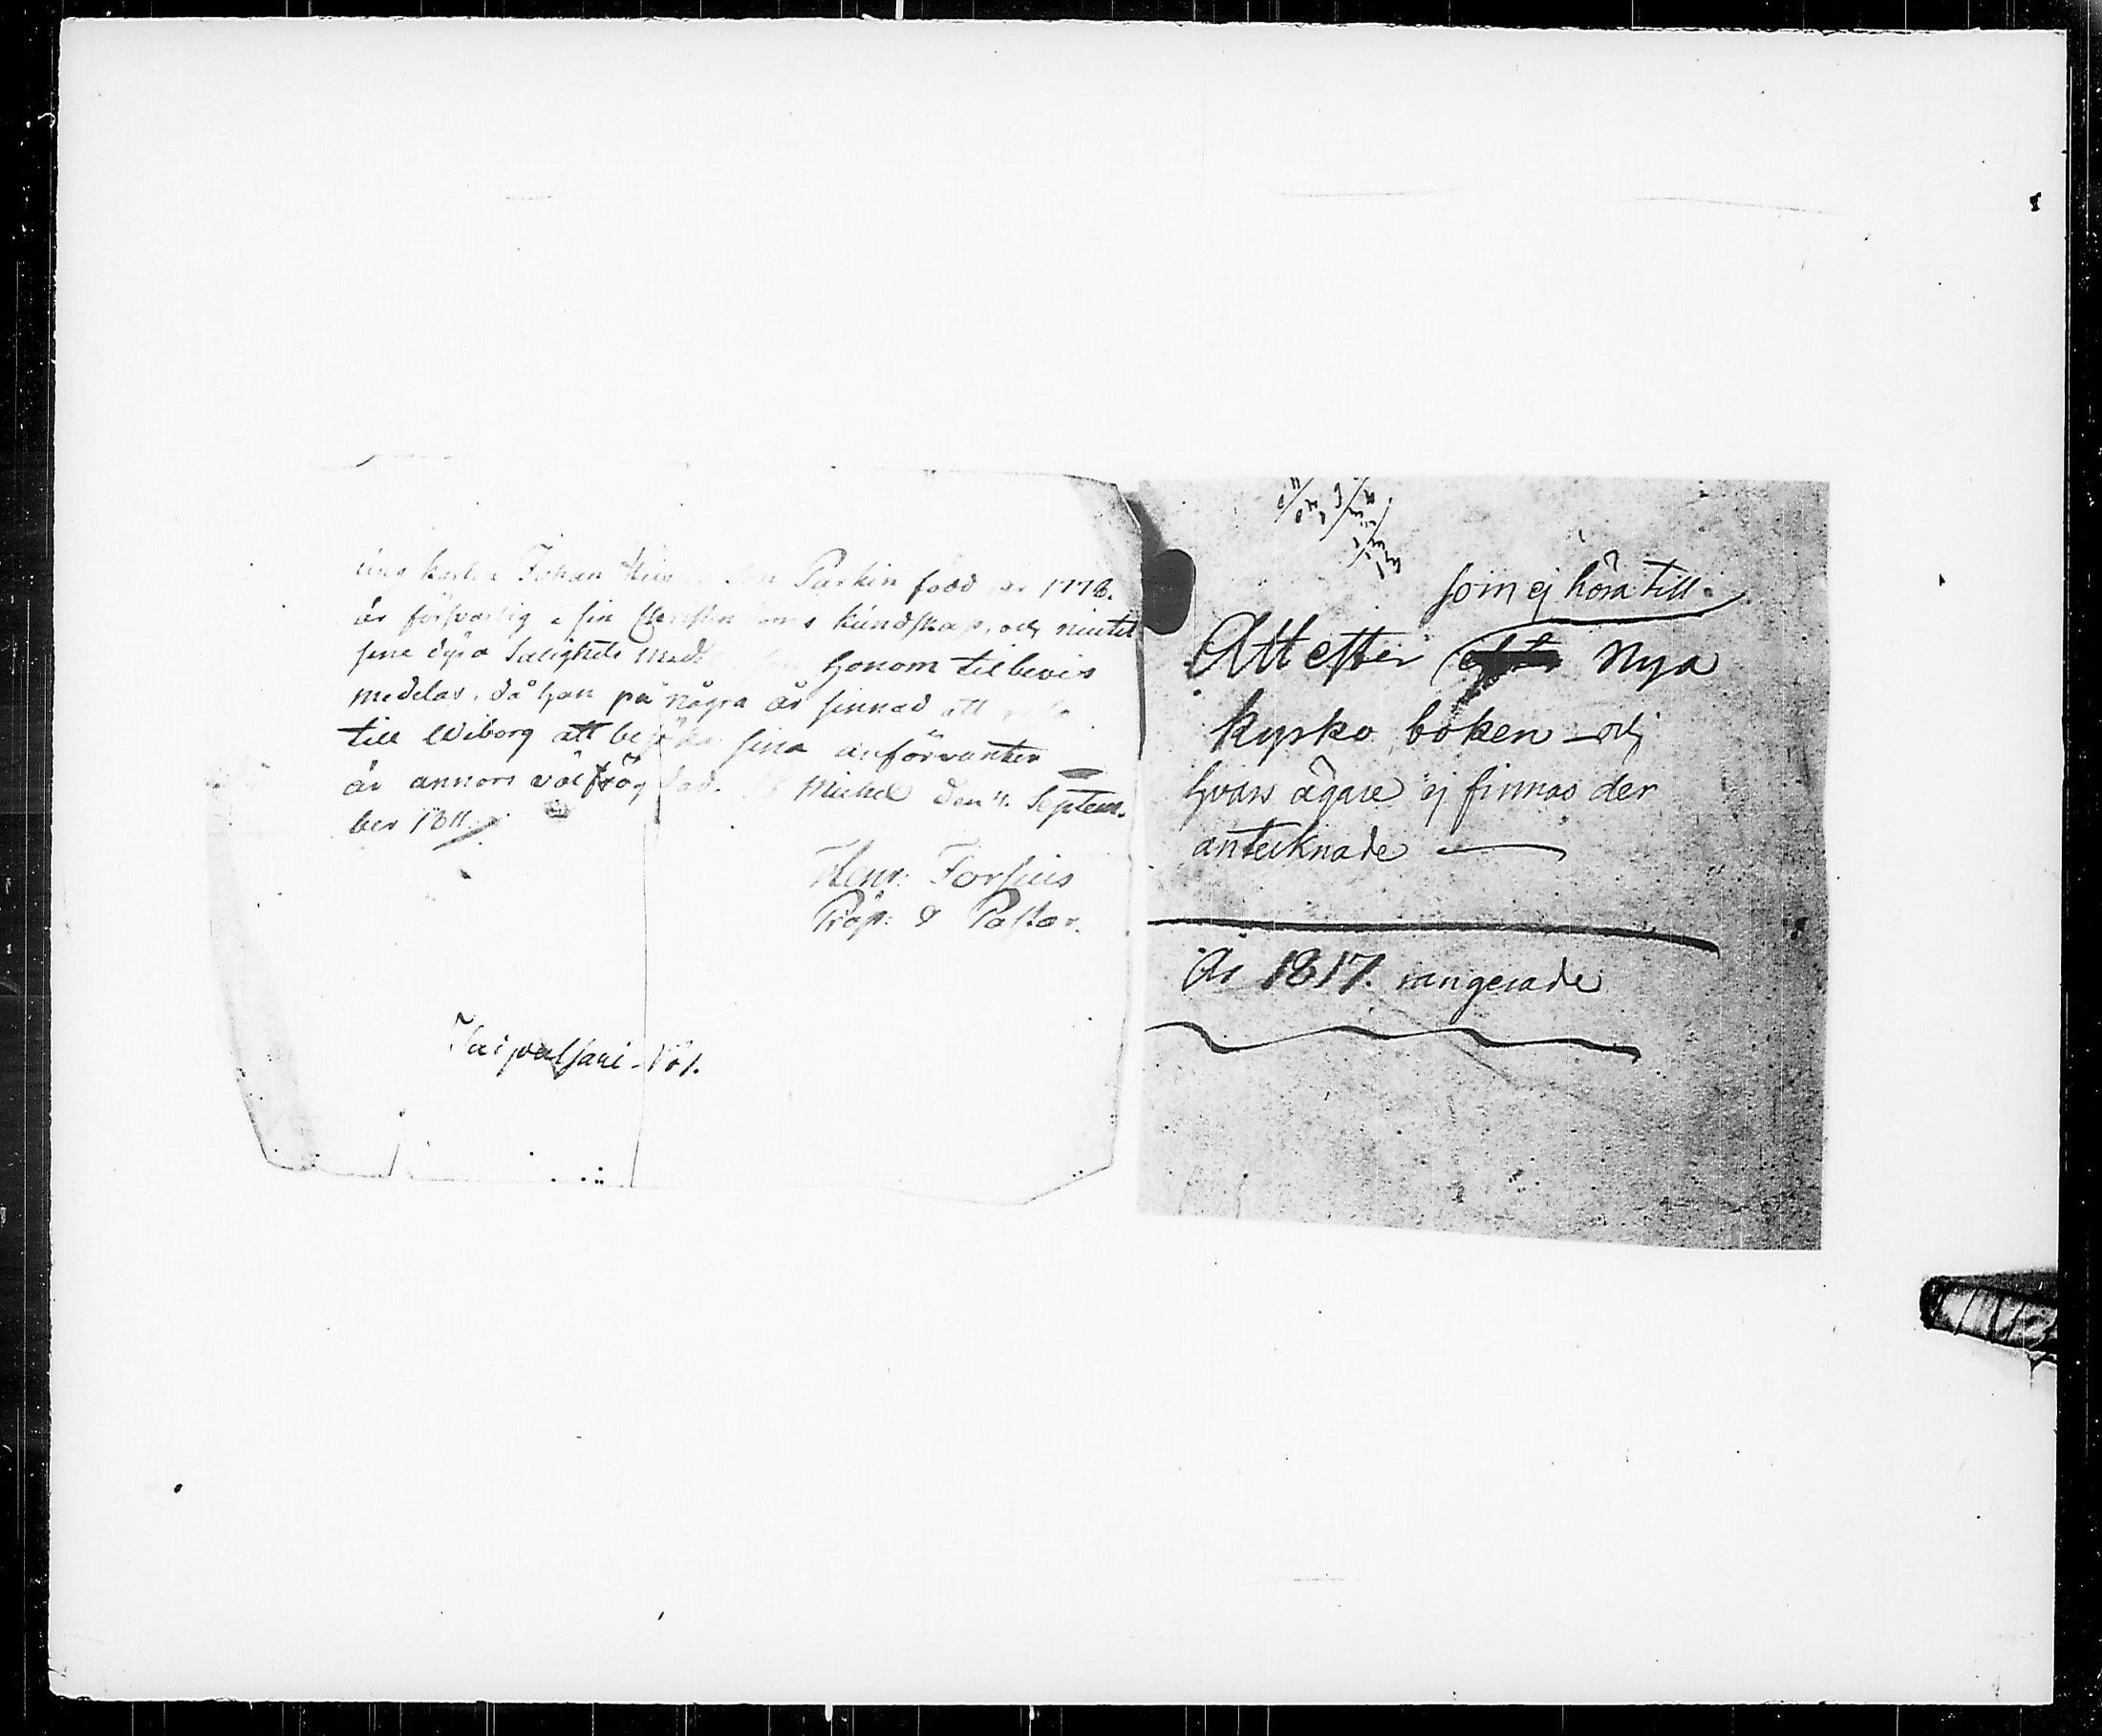 ung karlen Johan Parkin född år 1778.
är försvarlig i sin Christendoms kundskap, och niutit
sine dyra Salighets honom til bevis
medelas, då han på några år sinnad att
till Wiborg att besöka sina anförvanter
är annors välfrögdad. St Michel den 4. Septem-
ber 1811.
Henr: Forsius
Prop: & Pastor.
Taipalsari - 181.
som ej höra till.
Att efter Nya
kyrko boken och
hvars ägare ej finnas der
antecknade
År 1817. rangerade